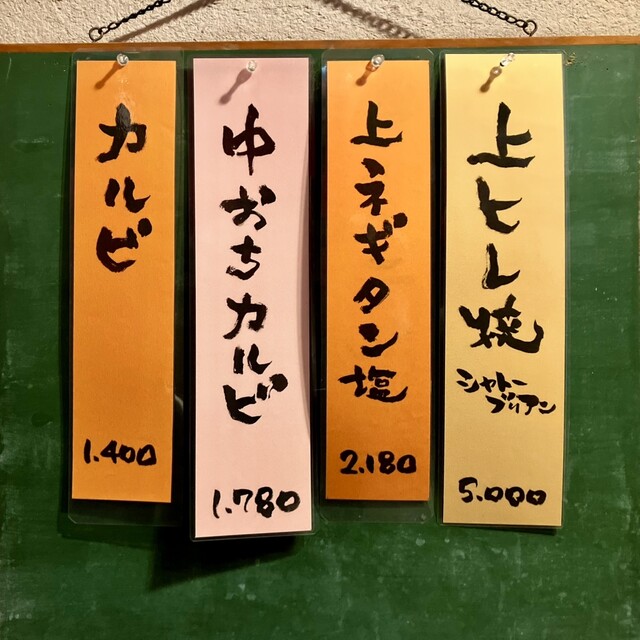 上ヒレ焼
シャトー
ブリアン
5.000
上ネギタン塩
2.180
中おちカルビ
1.780
カルビ
1.400